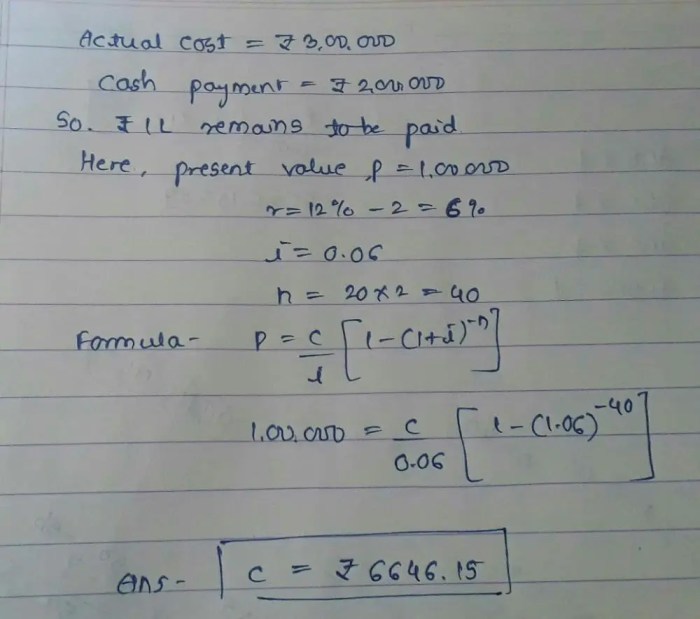 Actual cost = ₹ 3,00,000
Cash payment = ₹ 2,00,000
So. ₹ 1L remains to be paid
Here, present value, P = 1,00,000
r = 12% - 2 = 6%
i = 0.06
n = 20 × 2 = 40
Formula - P = C/i [1 - (1+i)^-n]
1,00,000 = C/0.06 [1 - (1.06)^-40]
Ans - C = ₹ 6646.15